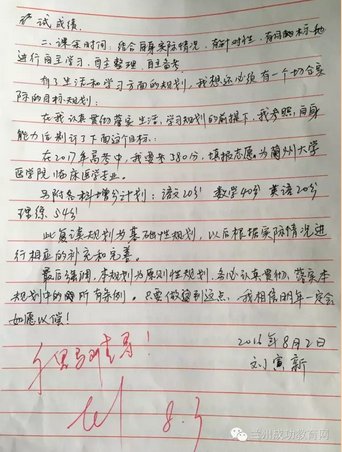 考试成绩.
二. 课余时间: 结合自身实际情况, 有针对性, 有目的, 有目标地
进行自主学习, 自主整理, 自主备考
有了生活和学习方面的规划, 我想还必须有一个切合实
际的目标规划:
在我认真贯彻落实生活、学习规划的前提下, 我参照自身
能力后制订了下面这个目标:
在2017年高考中, 我要考580分, 填报志愿为兰州大学
医学院, 临床医学专业。
另附各科增分计划: 语文20分 数学40分 英语20分
理综: 54分
此复读规划为基础性规划, 以后根据实际情况进
行相应的补充和完善。
最后强调, 本规划为原则性规划, 务必认真贯彻、落实本
规划中的所有条例。只要做到这点, 我相信明年一定会
如愿以偿!
2016年8月2日
刘寅新
8.3
兰州成功教育网